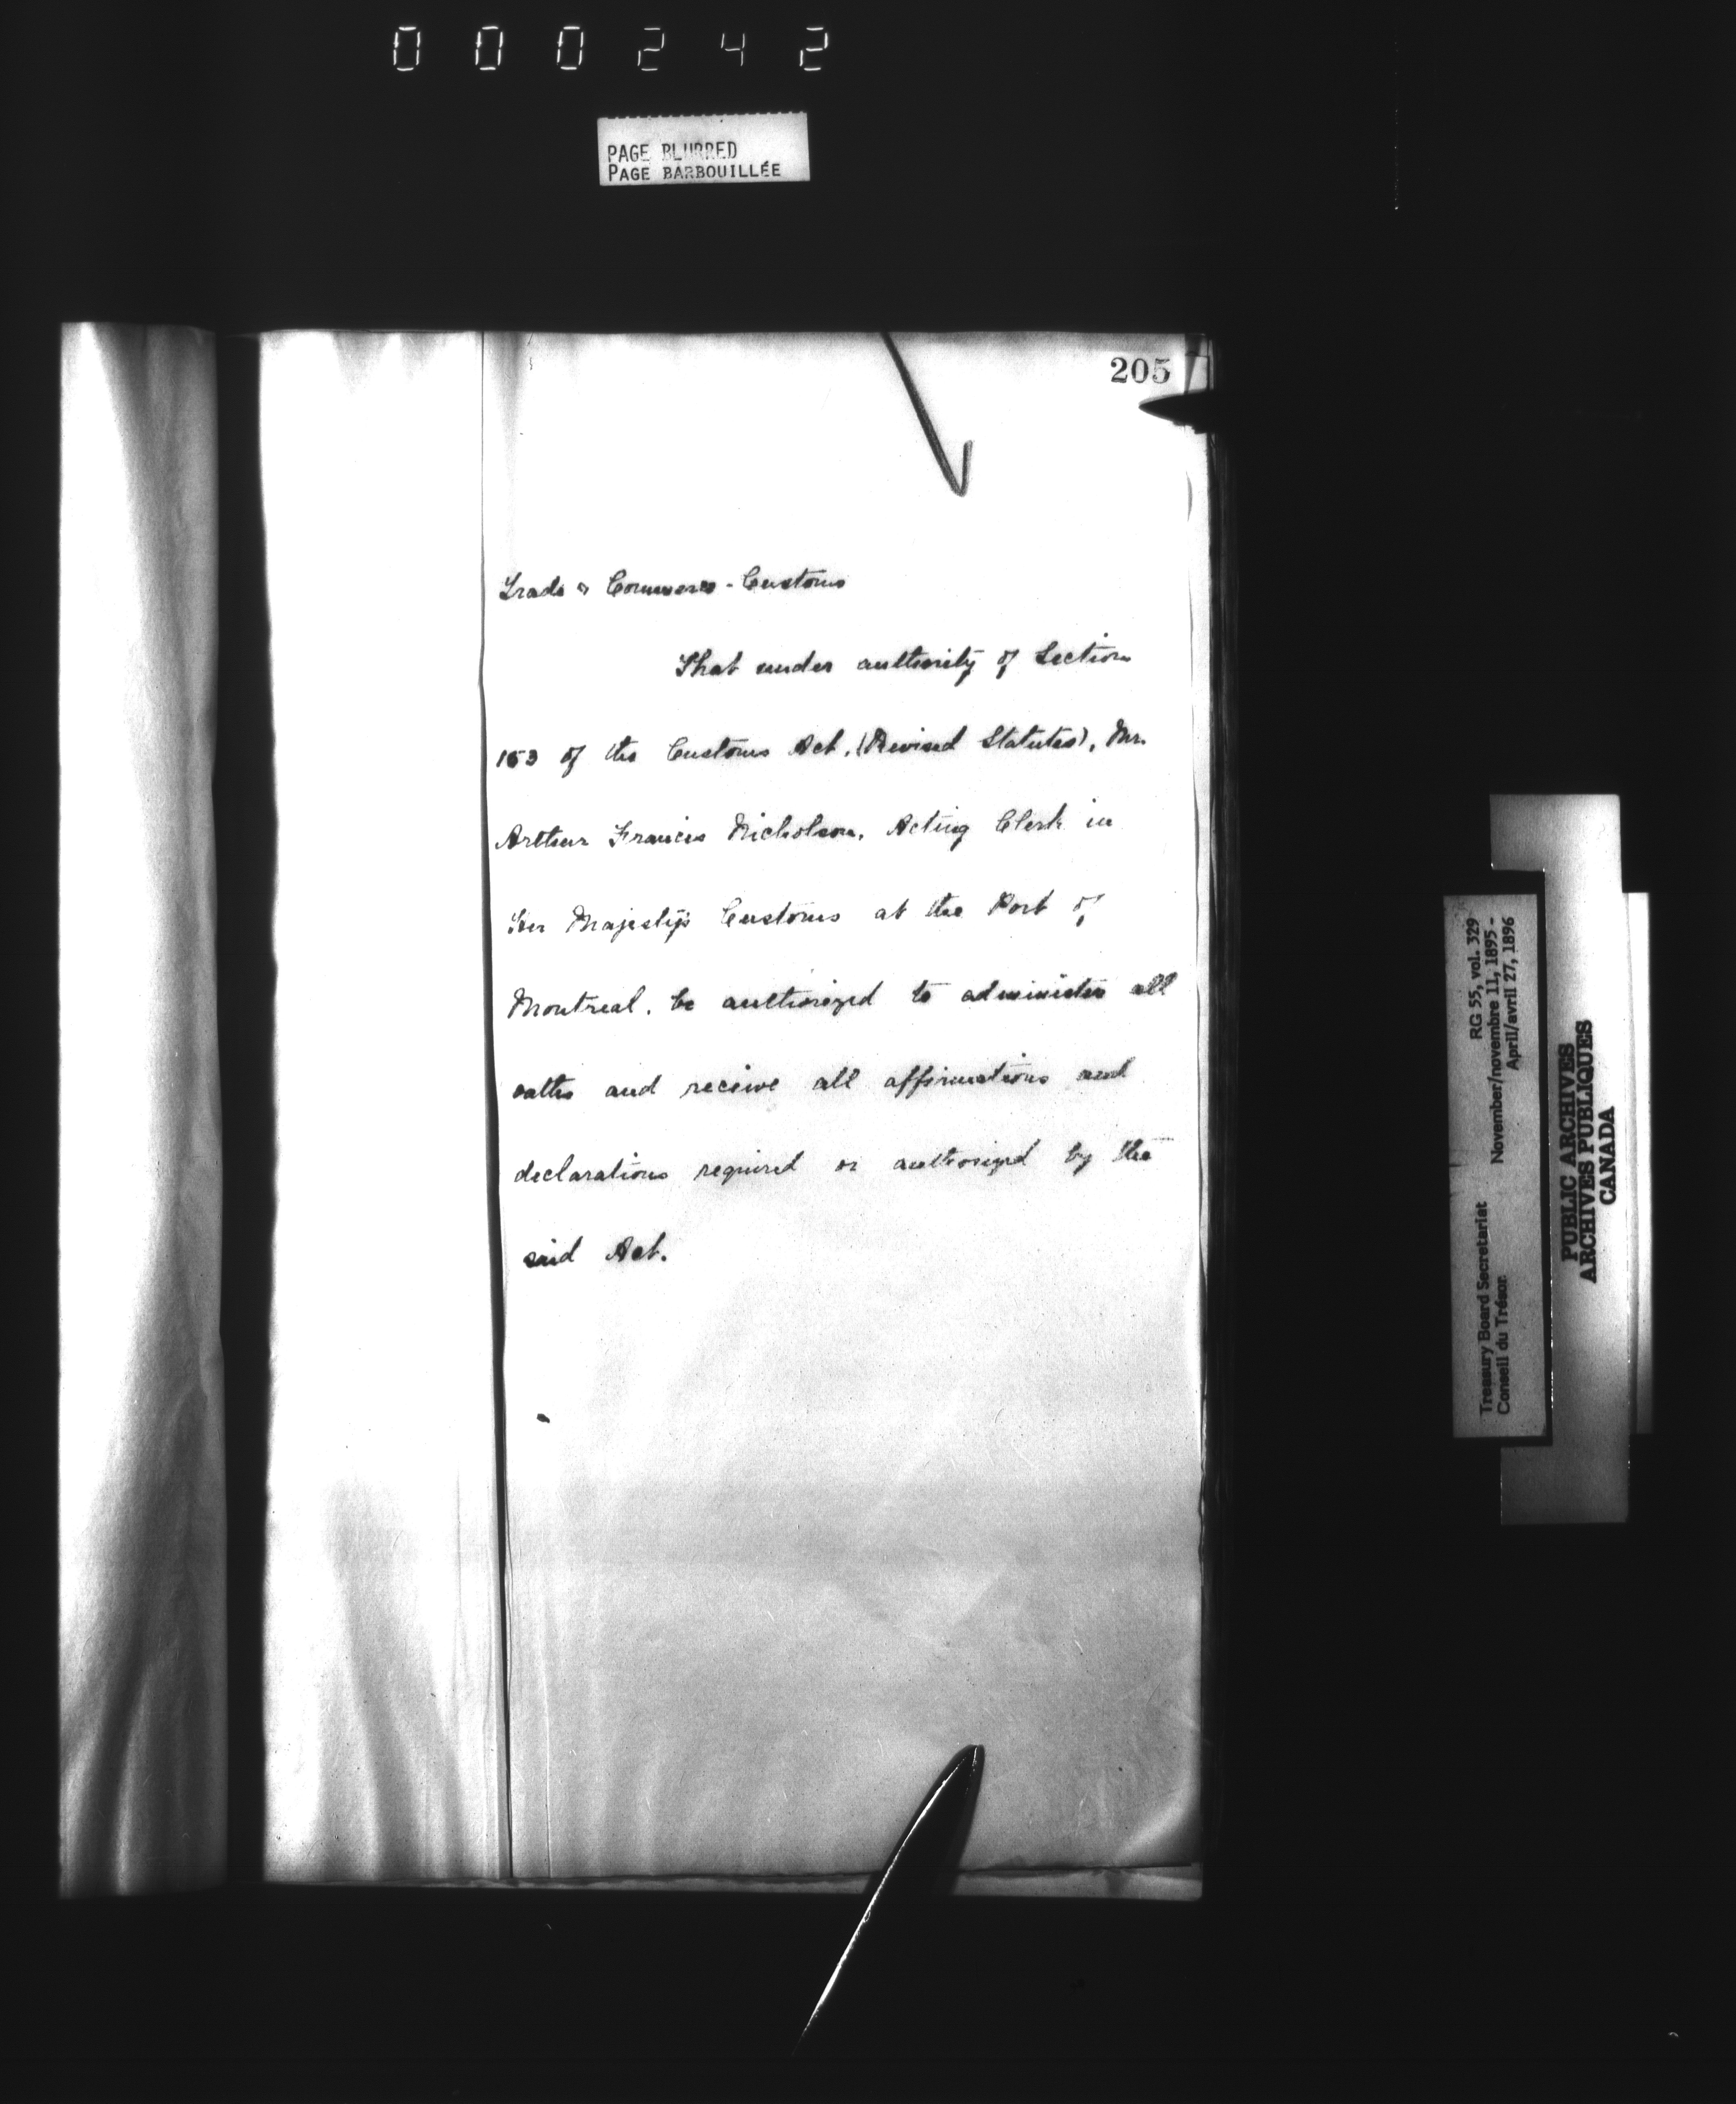 000242
PAGE BLURRED
PAGE BARBOUILLÉE
205
Trade & Commerce - Customs
That under authority of Section
153 of the Customs Act, (Revised Statutes), Mr.
Arthur Francis Nicholson, Acting Clerk in
Her Majesty's Customs at the Port of
Montreal, be authorized to administer all
oaths and receive all affirmations and
declarations required or authorized by the
said Act.
Treasury Board Secretariat RG 55, vol. 329
Conseil du Trésor November/novembre 11, 1895 -
April/avril 27, 1896
PUBLIC ARCHIVES
ARCHIVES PUBLIQUES
CANADA